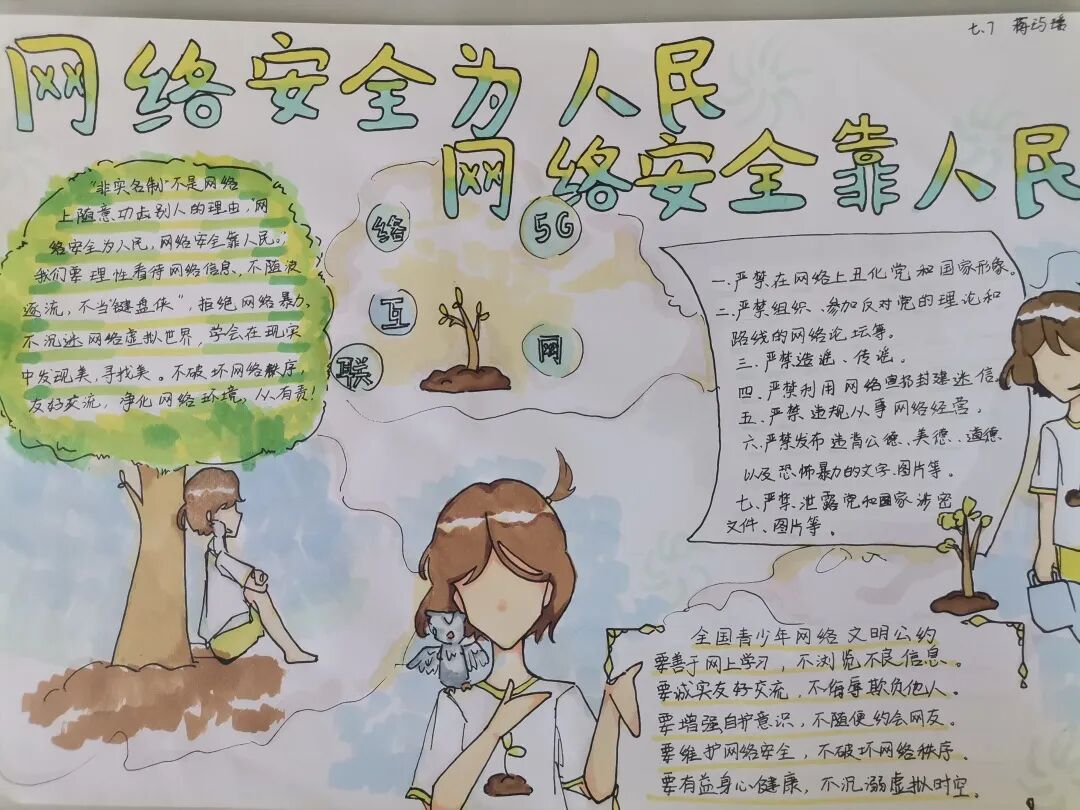 七.7 蒋巧瑶
网络安全为人民
网络安全靠人民
"非实名制"不是网络
上随意攻击别人的理由,"网
络安全为人民,网络安全靠人民。"
我们要理性看待网络信息、不随波
逐流,不当"键盘侠",拒绝网络暴力,
不沉迷网络虚拟世界,学会在现实
中发现美,寻找美。不破坏网络秩序,
友好交流,净化网络环境,从我有责!
络
5G
互
网
联
一.严禁在网络上丑化党和国家形象。
二.严禁组织、参加反对党的理论和
路线的网络论坛等。
三.严禁造谣、传谣。
四.严禁利用网络宣扬封建迷信。
五.严禁违规从事网络经营。
六.严禁发布违背公德、美德、道德
以及恐怖暴力的文字、图片等。
七.严禁泄露党和国家涉密
文件、图片等。
全国青少年网络文明公约
要善于网上学习,不浏览不良信息。
要诚实友好交流,不侮辱欺负他人。
要增强自护意识,不随便约会网友。
要维护网络安全,不破坏网络秩序.
要有益身心健康,不沉溺虚拟时空.